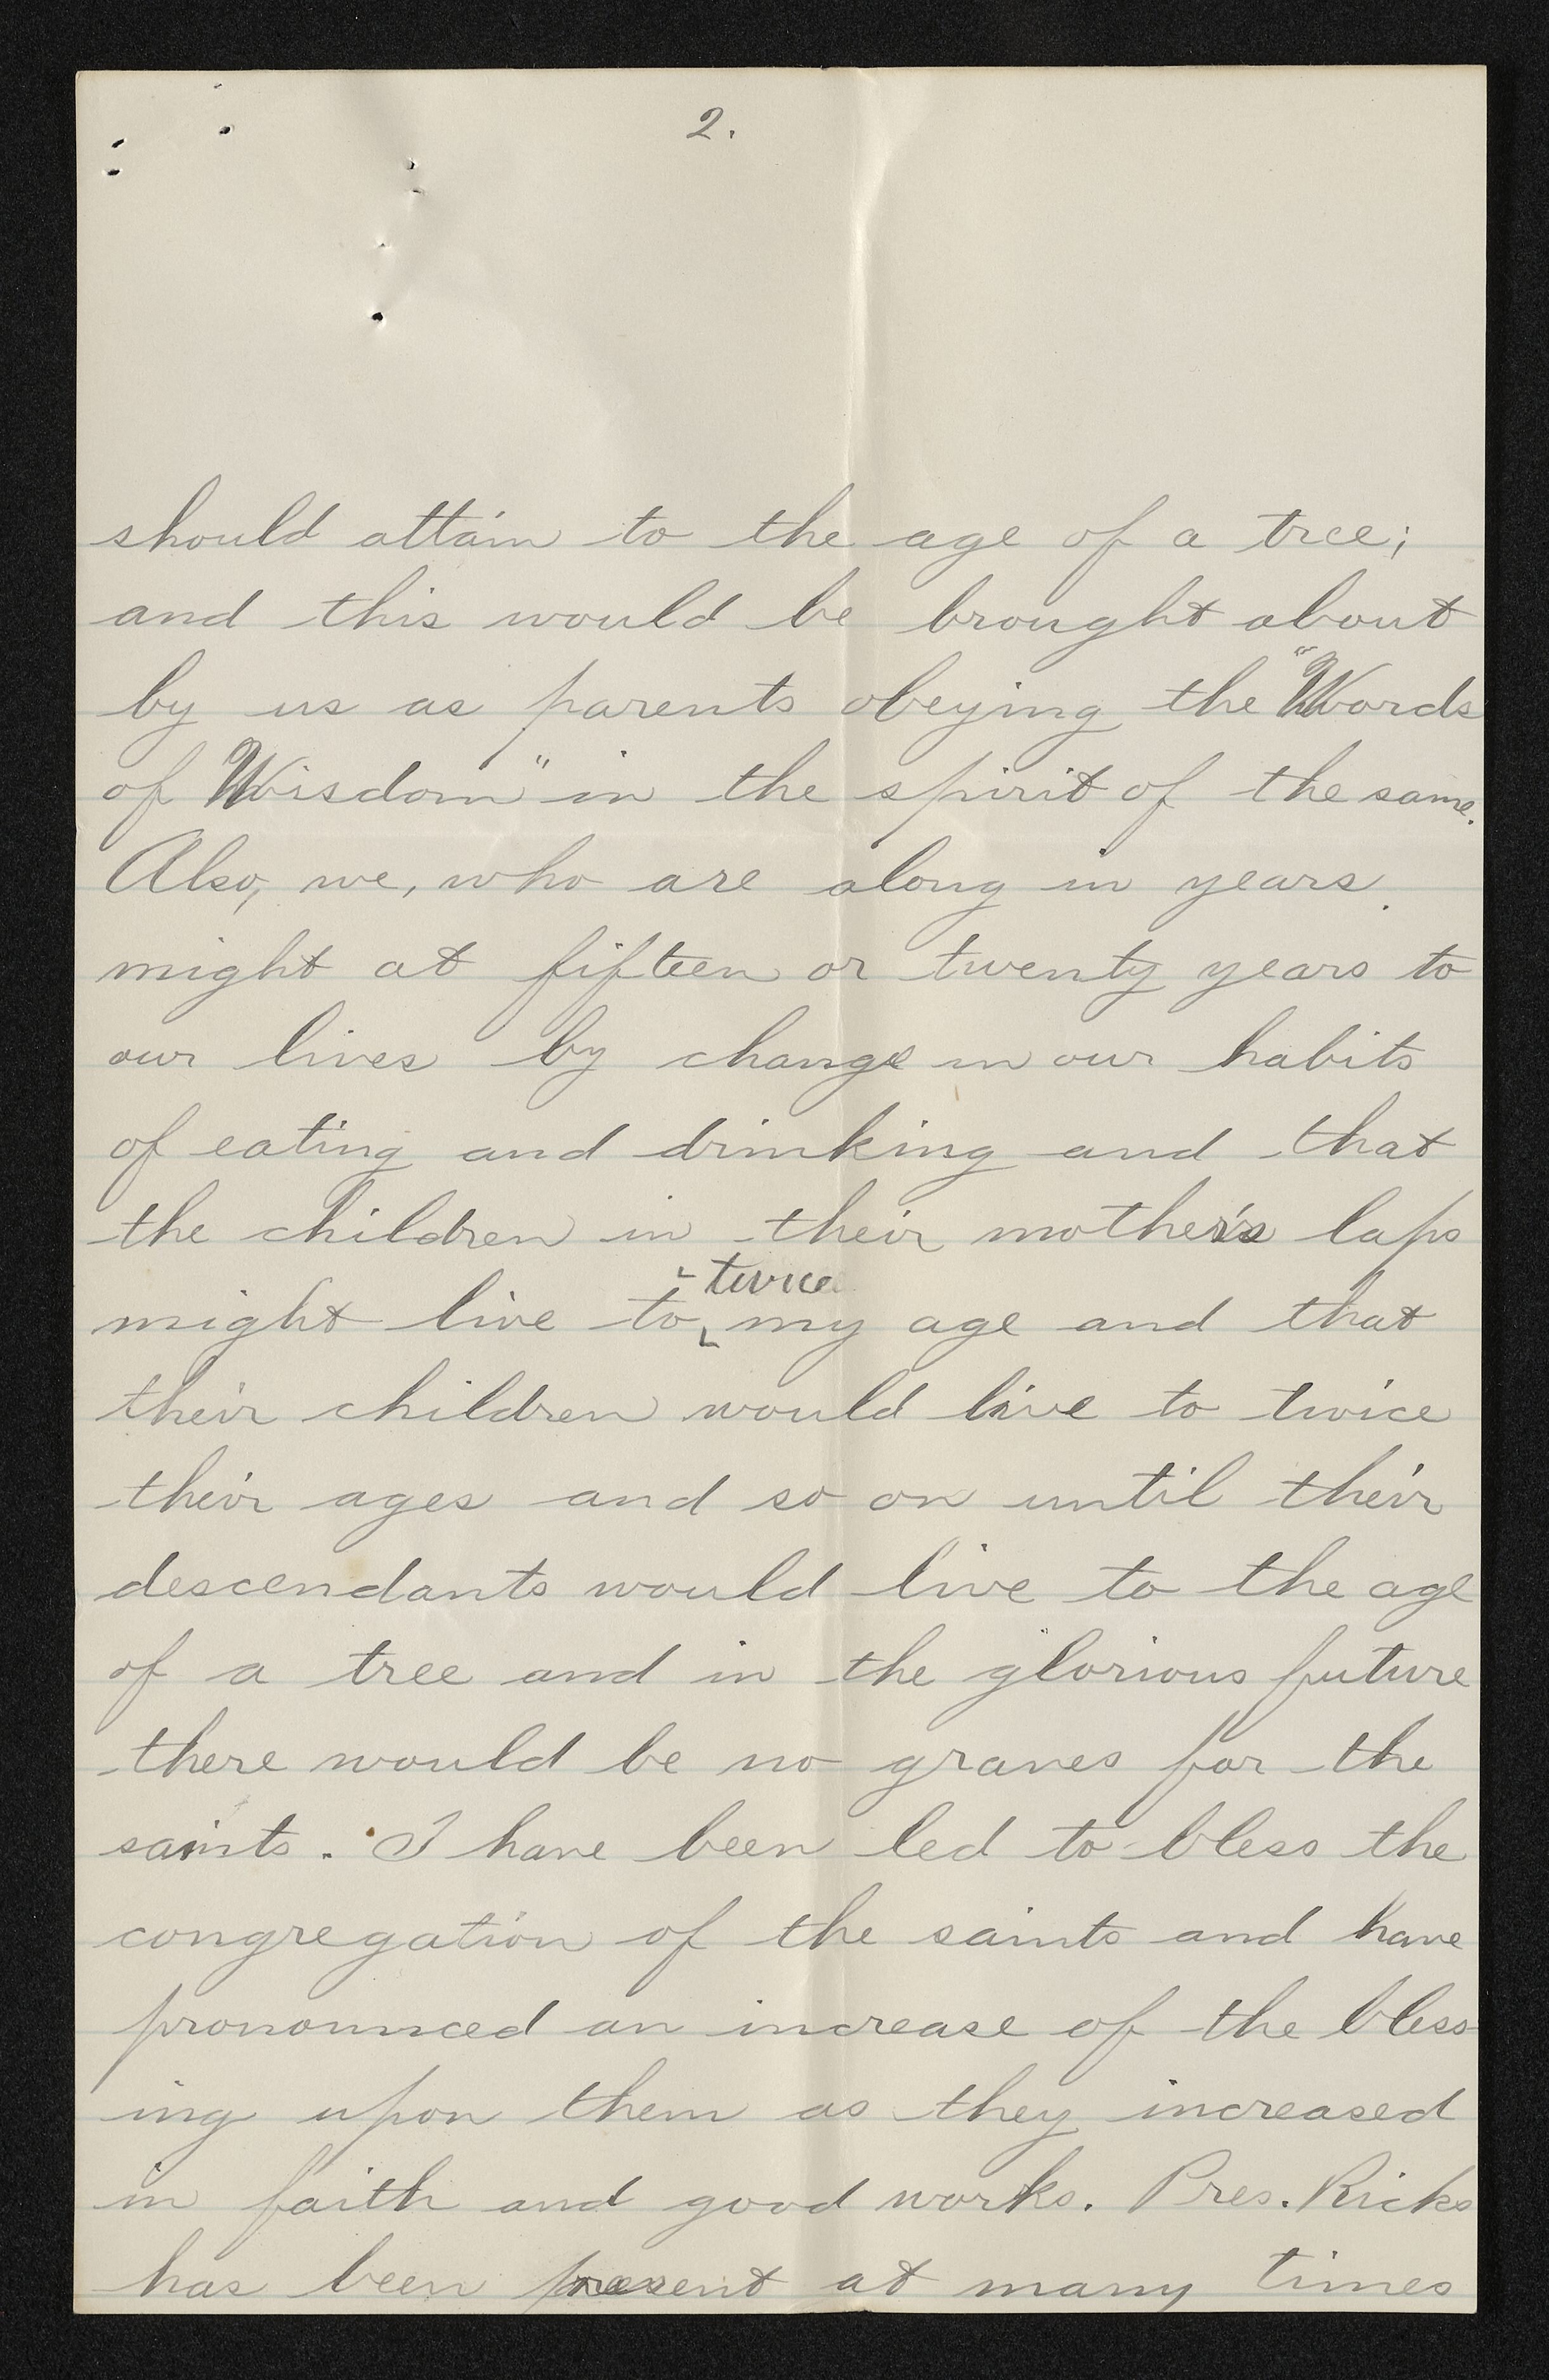 2.
should attain to the age of a tree;
and this would be brought about
by us as parents obeying the "Words
of Wisdom" in the spirit of the same.
Also, we, who are along in years.
might at fifteen or twenty years to
our lives by change in our habits
of eating and drinking and that
the children in their mother's laps
twice
might live to my age and that
their children would live to twice
their ages and so on until their
descendants would live to the age
of a tree and in the glorious future
there would be no graves for the
saints. I have been led to bless the
congregation of the saints and have
pronounced an increase of the bless
ing upon them as they increased
in faith and good works. Pres. Ricks
has been present at many times